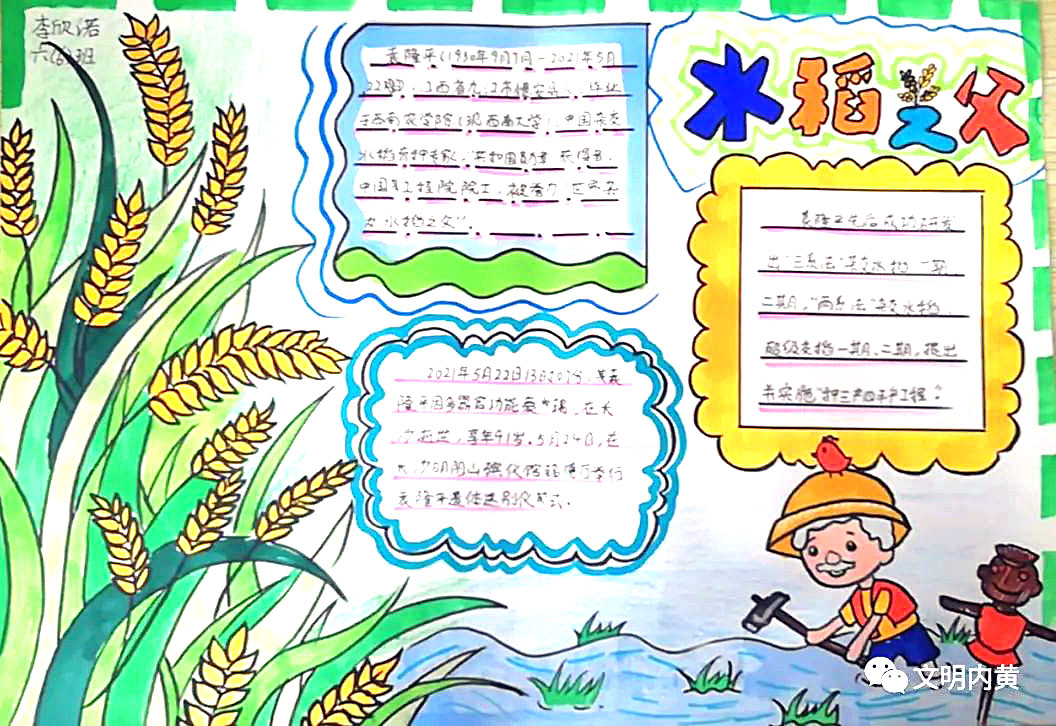 李欣诺
六(6)班
水稻之父
袁隆平(1930年9月7日-2021年5月
22日),江西省九江市德安县人,毕业
于西南农学院(现西南大学),中国杂交
水稻育种专家,"共和国勋章"获得者,
中国工程院院士,被誉为"世界杂
交水稻之父"。
袁隆平先后成功研发
出"三系法"杂交水稻
二期,"两系法"杂交水稻,
超级杂稻一期、二期,提出
并实施"种三产四丰产工程"。
2021年5月22日13时07分,袁
隆平因多器官功能衰竭,在长
沙逝世,享年91岁。5月24日,在
长沙明阳山殡仪馆铭德厅举行
袁隆平遗体送别仪式。
文明内黄